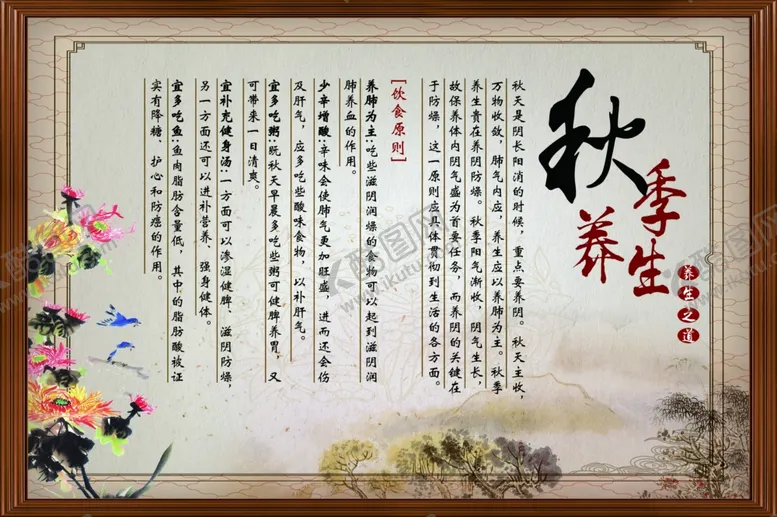 秋季养生
养生之道
秋天是阴长阳消的时候，重点要养阴。秋天主收，
万物收敛，肺气内应，养生应以养肺为主。秋季
养生贵在养阴防燥。秋季阳气渐收，阴气生长，
故保养体内阴气盛为首要任务，而养阴的关键在
于防燥，这一原则应具体贯彻到生活的各方面。
[饮食原则]
养肺为主：吃些滋阴润燥的食物可以起到滋阴润
肺养血的作用。
少辛增酸：辛味会使肺气更加旺盛，进而还会伤
及肝气，应多吃些酸味食物，以补肝气。
宜多吃粥：既秋天早晨多吃些粥可健脾养胃，又
可带来一日清爽。
宜补充健身汤：一方面可以渗湿健脾、滋阴防燥，
另一方面还可以进补营养、强身健体。
宜多吃鱼：鱼肉脂肪含量低，其中的脂肪酸被证
实有降糖、护心和防癌的作用。
酷图网
www.ikutu.com